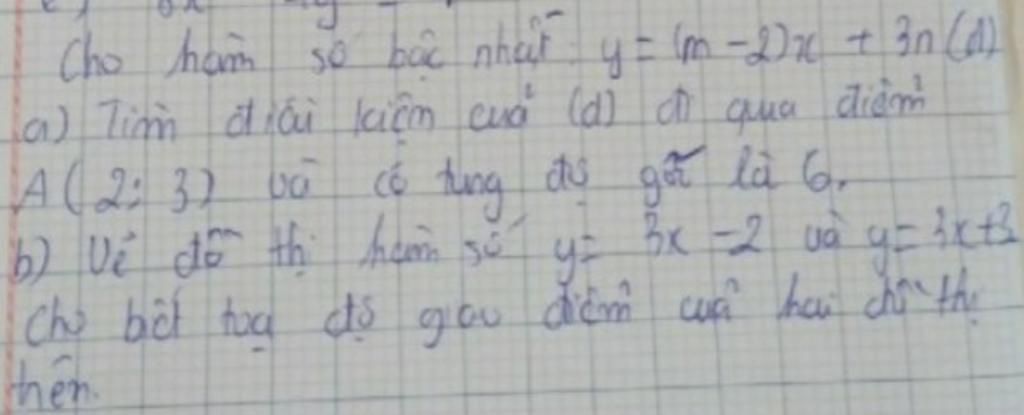 Cho hàm số bậc nhất y = (m - 2)x + 3n (d)
a) Tìm điều kiện của (d) đi qua điểm
A ( 2 ; 3 ) và có tung độ gốc là 6.
b) Vẽ đồ thị hàm số y = 3x - 2 và y = 3x + 2
Cho biết toạ độ giao điểm của hai đồ thị
trên.